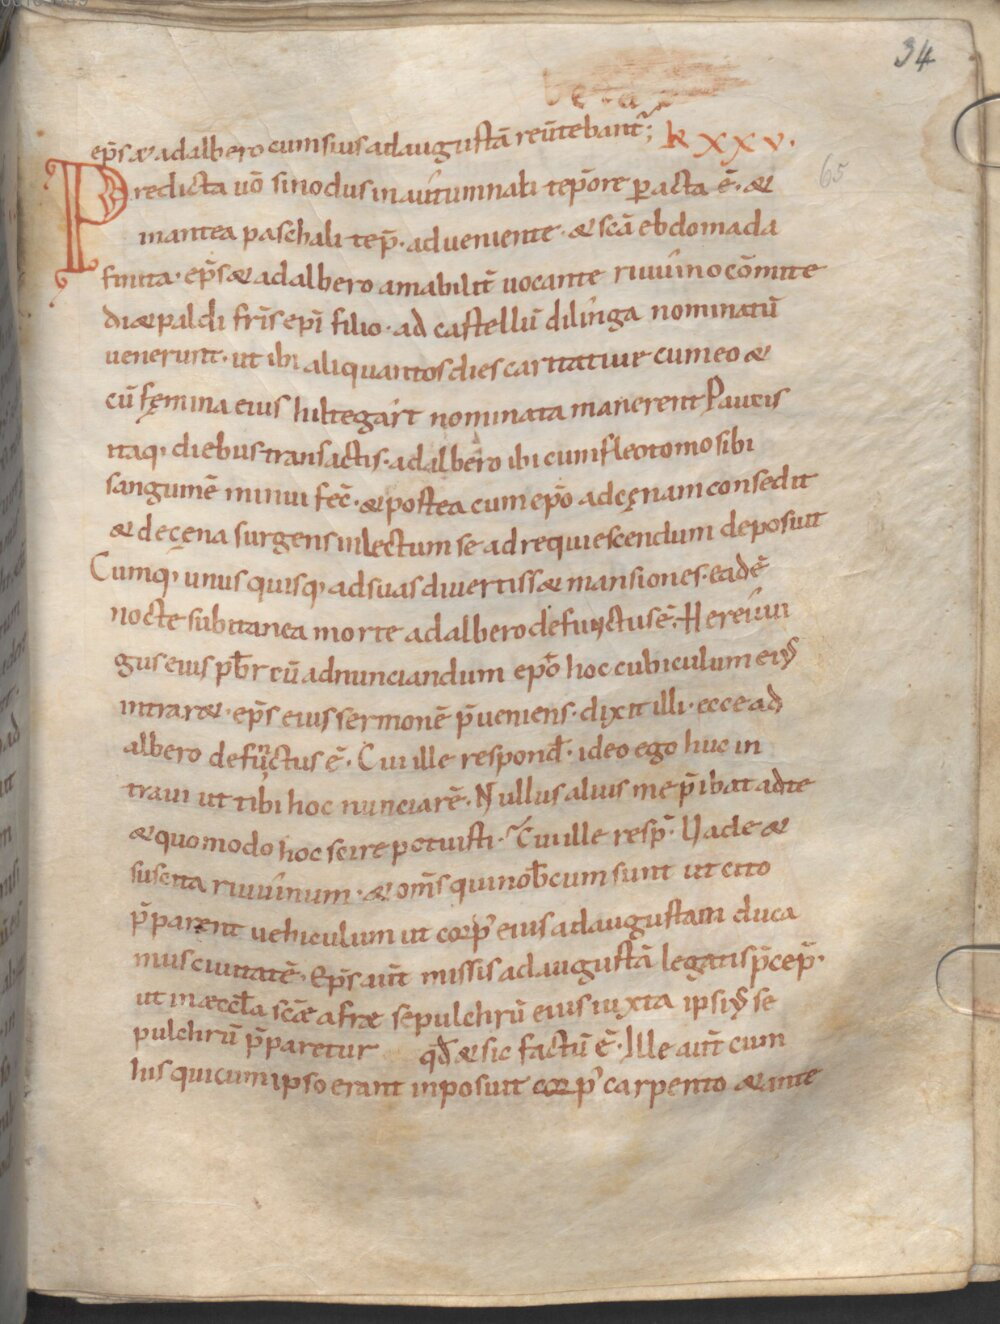 34
ep̄s & adalbero cum suis ad augustā reūtebant᷑;
K XXXV.
65
Predicta uō sinodus in autumnali tēpore peracta ē· &
in antea paschali tēp̄· adueniente· & scā ebdomada
finita· ep̄s & adalbero amabilit̄ uocante riuuino comite
di&paldi fr̄is ep̄i filio· ad castellū dilinga nominatū
uenerunt· ut ibi aliquantos dies caritatiue cum eo &
cū fęmina eius hiltegárt nominata manerent Paucis
itaq· diebus transactis· adalbero ibi cum fleotomo sibi
sanguinē minui fec̄· & postea cum ep̄o ad cęnam consedit
& de cęna surgens in lectum se ad requiescendum deposuit
Cumq· unus quisq· ad suas diuertiss& mansiones· eadē
nocte subitanea morte adalbero defunctus ē· Hereuui
gus eius pb̄r cū adnunciandum ep̄o hoc cubiculum eius
intrar&· ep̄s eius sermonē p̄ueniens· dixit illi· ecce ad
albero defunctus ē· Cui ille respond̄· ideo ego huc in
traui ut tibi hoc nunciarē· Nullus alius me p̄ibat ad te
& quomodo hoc scire potuisti· Cui ille resp̄· Uade &
suscita riuuinum· & om̄s qui nob̄cum sunt ut cito
p̄parent uehiculum ut corp᷒ eius ad augustam duca
mus ciuitatē· Ep̄s aūt missis ad augustā legatis p̄cep̄·
ut in æccl̄a scǣ afræ sepulchrū eius iuxta ipsius se
pulchrū p̄paretur qd̄ & sic factū ē· Ille aūt cum
his qui cum ipso erant inposuit corp᷒ carpento & ante